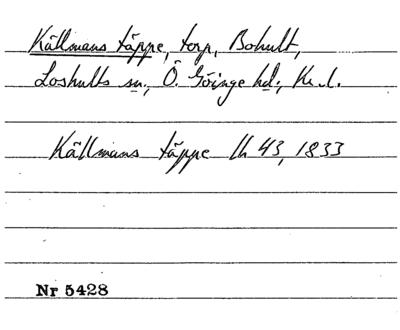 Källmans täppe, torp, Bohult,
Loshults sn., Ö. Göinge hd., Kr. l.
Källmans täppe lh 43, 1833
Nr 5428